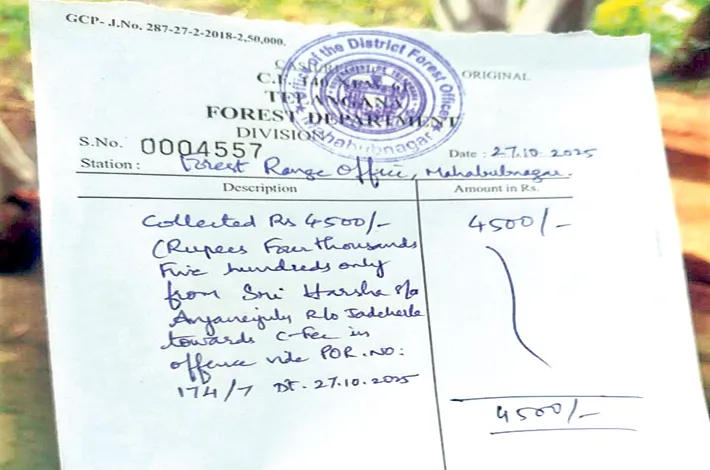 GCP- J.No. 287-27-2-2018-2,50,000.
Office of the District Forest Officer
Mahabubnagar
ORIGINAL
TELANGANA
FOREST DEPARTMENT
DIVISION
S.No. 0004557
Date : 27.10.2025
Station : Forest Range Office, Mahabubnagar.
Description Amount in Rs.
Collected Rs 4500/- 4500/-
(Rupees Four thousands
Five hundreds only
from Sri Harsha S/o
Anjaneyulu R/o Jadcherla
towards C-Fee in
offence vide POR.NO:
174/7 Dt. 27.10.2025
4500/-